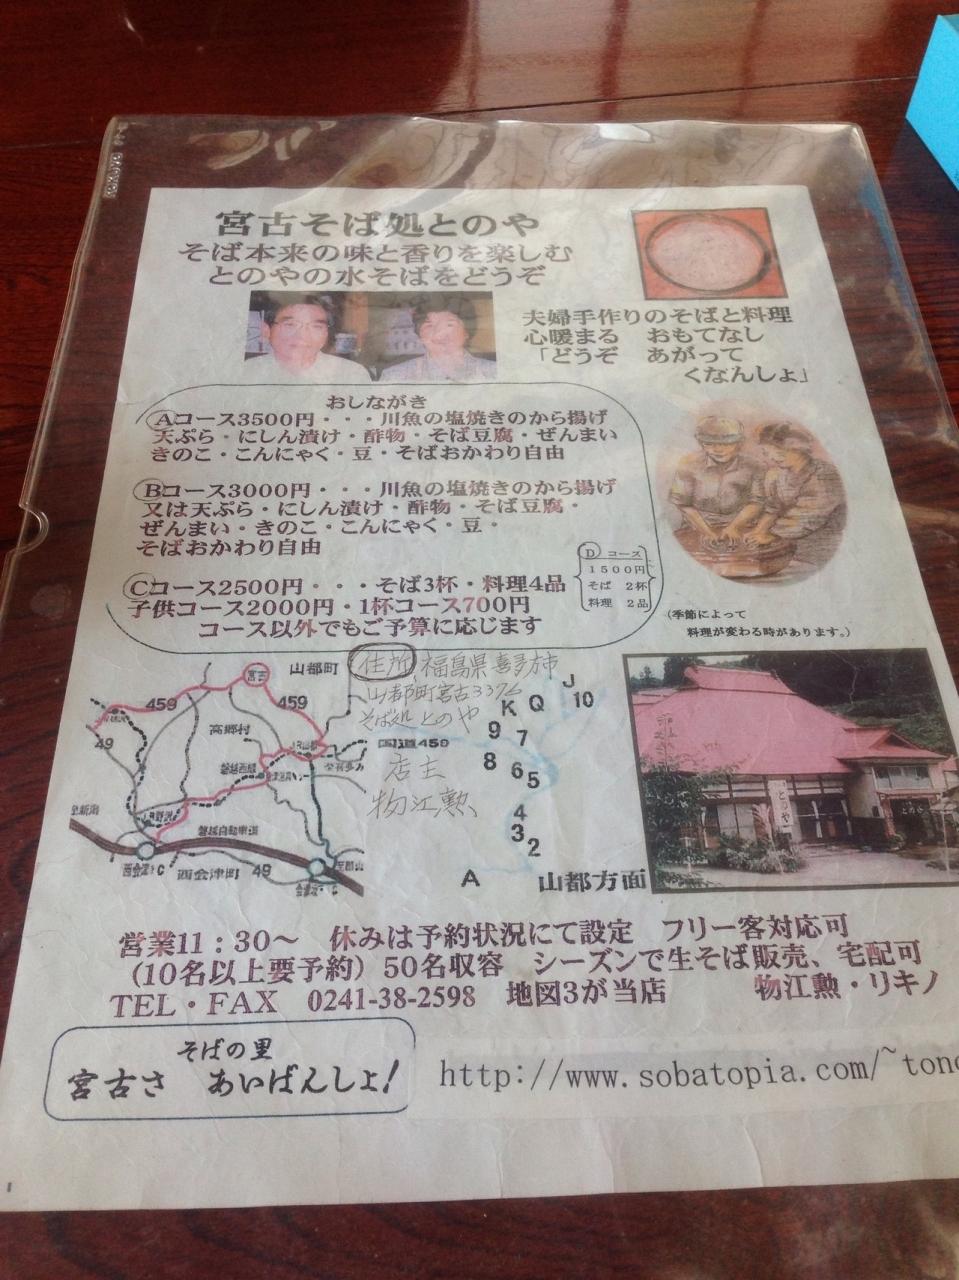 宮古そば処とのや
そば本来の味と香りを楽しむ
とのやの水そばをどうぞ
夫婦手作りのそばと料理
心暖まる おもてなし
「どうぞ あがって
くなんしょ」
おしながき
Ⓐコース3500円・・・川魚の塩焼きのから揚げ
天ぷら・にしん漬け・酢物・そば豆腐・ぜんまい
きのこ・こんにゃく・豆・そばおかわり自由
Ⓑコース3000円・・・川魚の塩焼きのから揚げ
又は天ぷら・にしん漬け・酢物・そば豆腐・
ぜんまい・きのこ・こんにゃく・豆・
そばおかわり自由
Ⓒコース2500円・・・そば3杯・料理4品
子供コース2000円・1杯コース700円
コース以外でもご予算に応じます
Ⓓコース
1500円
そば 2杯
料理 2品
(季節によって
料理が変わる時があります。)
山都町
宮古
459
459
49
高郷村
磐越西線
国道459
至新潟
磐越自動車道
西会津IC
西会津町
49
住所 福島県喜多方市
山都町宮古3376
そば処 とのや
店主
物江勲
J
10
K
Q
9
7
8
6
5
4
3
2
A
山都方面
営業11：30～ 休みは予約状況にて設定 フリー客対応可
(10名以上要予約) 50名収容 シーズンで生そば販売、宅配可
TEL・FAX 0241-38-2598 地図3が当店 物江勲・リキノ
そばの里
宮古さ あいばんしょ!
http://www.sobatopia.com/~tono